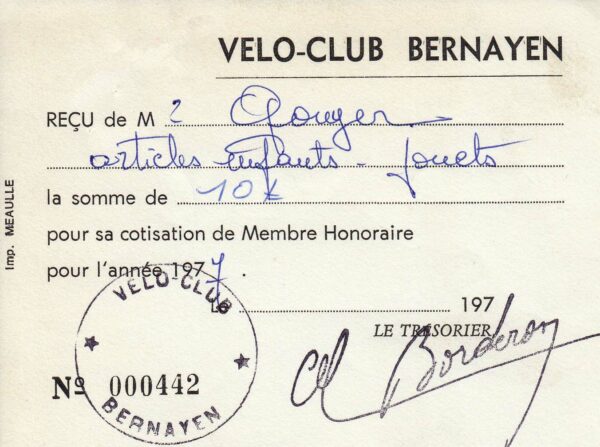 VELO-CLUB BERNAYEN
REÇU de M r Gouyer
articles enfants - jouets
la somme de 10 F
pour sa cotisation de Membre Honoraire
pour l'année 1977.
Le 197
LE TRÉSORIER,
Borderon
VELO-CLUB
BERNAYEN
Nº 000442
Imp. MEAULLE